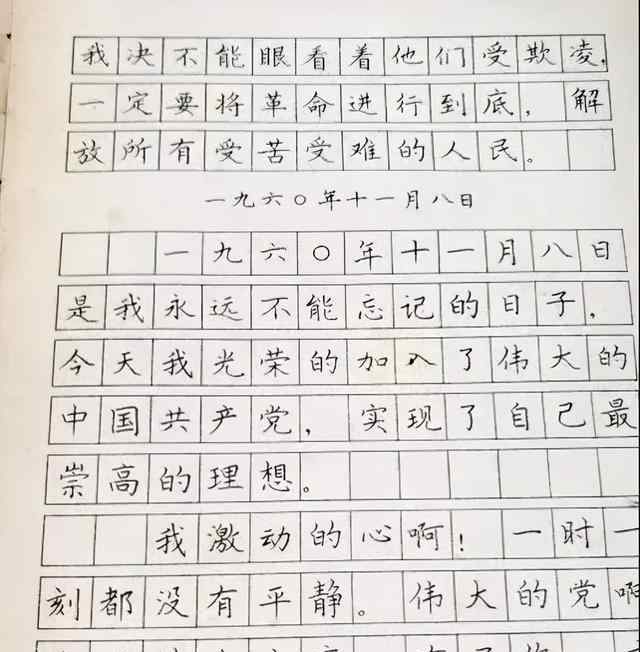 我决不能眼看着他们受欺凌,
一定要将革命进行到底，解
放所有受苦受难的人民。
一九六〇年十一月八日
一九六〇年十一月八日
是我永远不能忘记的日子，
今天我光荣的加入了伟大的
中国共产党，实现了自己最
崇高的理想。
我激动的心啊！一时一
刻都没有平静。伟大的党啊